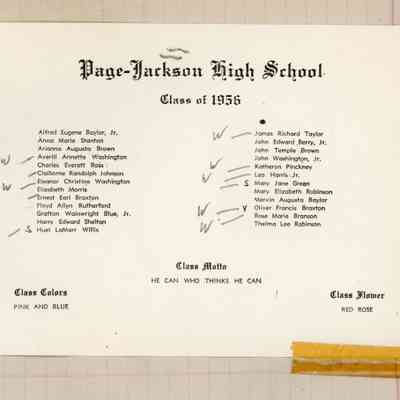 Page-Jackson High School
Class of 1956
Alfred Eugene Baylor, Jr.
Anna Marie Stanton
Arianna Augusta Brown
W Averill Annette Washington
Charles Everett Ross
Claiborne Randolph Johnson
Eleanor Christine Washington
W Elizabeth Morris
Ernest Earl Braxton
Floyd Allyn Rutherford
Gratton Wainwright Blue, Jr.
Harry Edward Shelton
S Huel LaMarr Willis
W James Richard Taylor
John Edward Berry, Jr.
John Temple Brown
John Washington, Jr.
Katheryn Pinckney
Leo Harris Jr.
S Mary Jane Green
Mary Elizabeth Robinson
Mervin Augusta Baylor
W V Oliver Francis Braxton
Rose Marie Branson
W Thelma Lee Robinson
Class Motto
HE CAN WHO THINKS HE CAN
Class Colors
PINK AND BLUE
Class Flower
RED ROSE